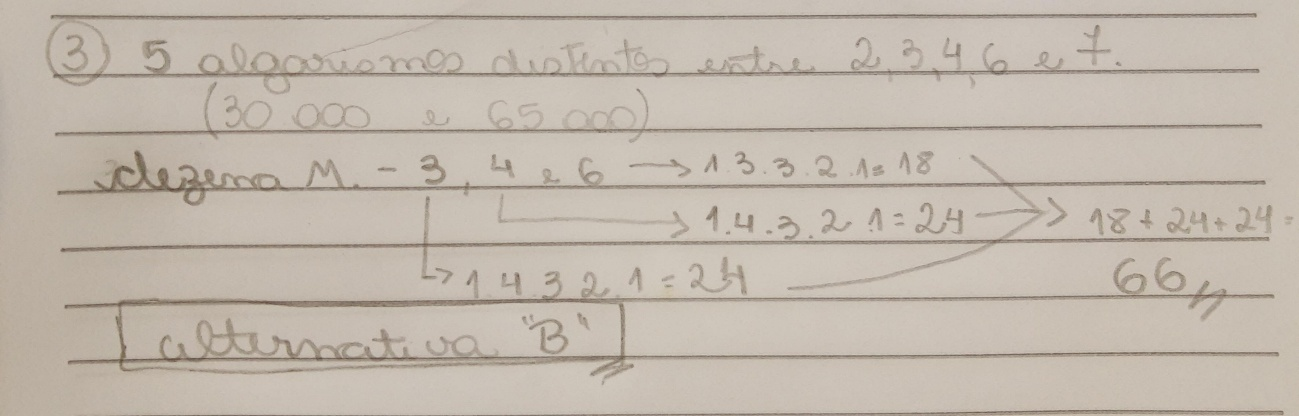 3 5 algarismos distintos entre 2,3,4,6 e 7.
(30 000 e 65 000)
dezena M. - 3, 4 e 6 → 1.3.3.2.1=18
→ 1.4.3.2.1=24 → 18+24+24=
→ 1.4.3.2.1=24 66
alternativa "B"